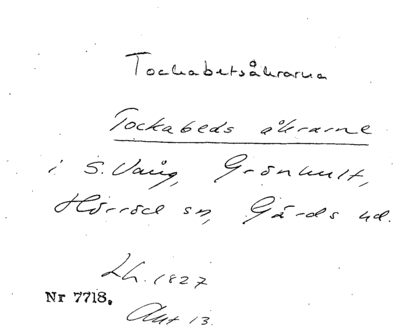 Tockabetsåkrarna
Tockabeds åkrarne
i S. Vång, Grönhult,
Hörröd sn, Gärds hd.
Lh. 1827
Nr 7718.
Akt 13.